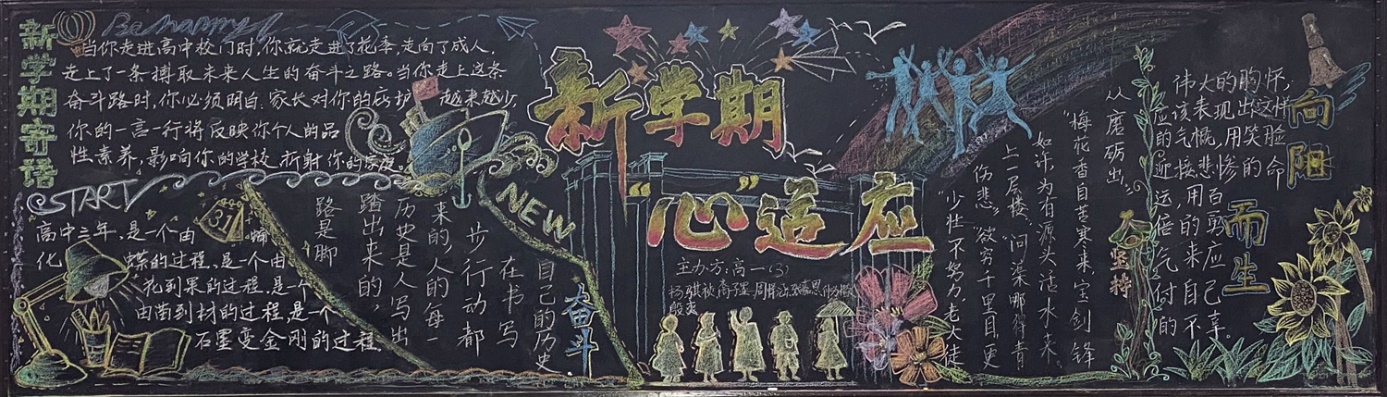 新学期寄语
Be happy!
当你走进高中校门时,你就走进了花季,走向了成人,
走上了一条搏取未来人生的奋斗之路。当你走上这条
奋斗路时,你必须明白:家长对你的庇护 越来越少,
你的一言一行将反映你个人的品
性素养,影响你的学校,折射你的家庭。
START
31
高中三年,是一个由蛹
化蝶的过程,是一个由
花到果的过程,是一个
由苗到树的过程,是一个
石墨变金刚的过程。
路是脚
踏出来的
历史是人写出
来的,人的每一
步行动都
在书写
自己的历史
NEW
奋斗
新学期
“心”适应
主办方:高一(3)
从磨砺出”
“梅花香自苦寒来,宝剑锋
如许,为有源头活水来
上一层楼”“问渠哪得青
伤悲”“欲穷千里目,更
“少壮不努力,老大徒
坚持
伟大的胸怀,
应该表现出这样
的气概,用笑脸
迎接悲惨的命
运,用百
倍的勇
气来应
付自己
的不幸。
向阳而生